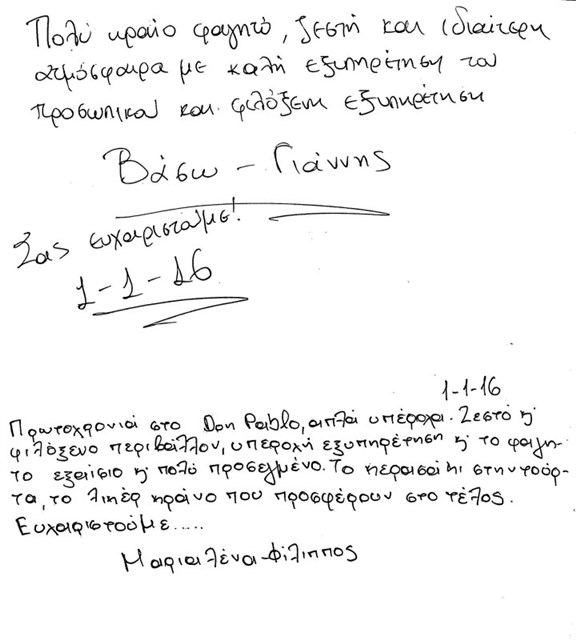 Πολύ ωραίο φαγητό, ζεστή και ιδιαίτερη
ατμόσφαιρα με καλή εξυπηρέτηση του
προσωπικού και φιλόξενη εξυπηρέτηση
Βάσω - Γιάννης
Σας ευχαριστούμε!
1-1-16
1-1-16
Πρωτοχρονιά στο Don Pablo, απλά υπέροχα. Ζεστό η
φιλόξενο περιβάλλον, υπέροχη εξυπηρέτηση η το φαγη-
το εξαίσιο η πολύ προσεγμένο. Το κερασάκι στην τούρ-
τα, το λικέρ κράνο που προσφέρουν στο τέλος.
Ευχαριστούμε.....
Μαριαλένα-Φίλιππος